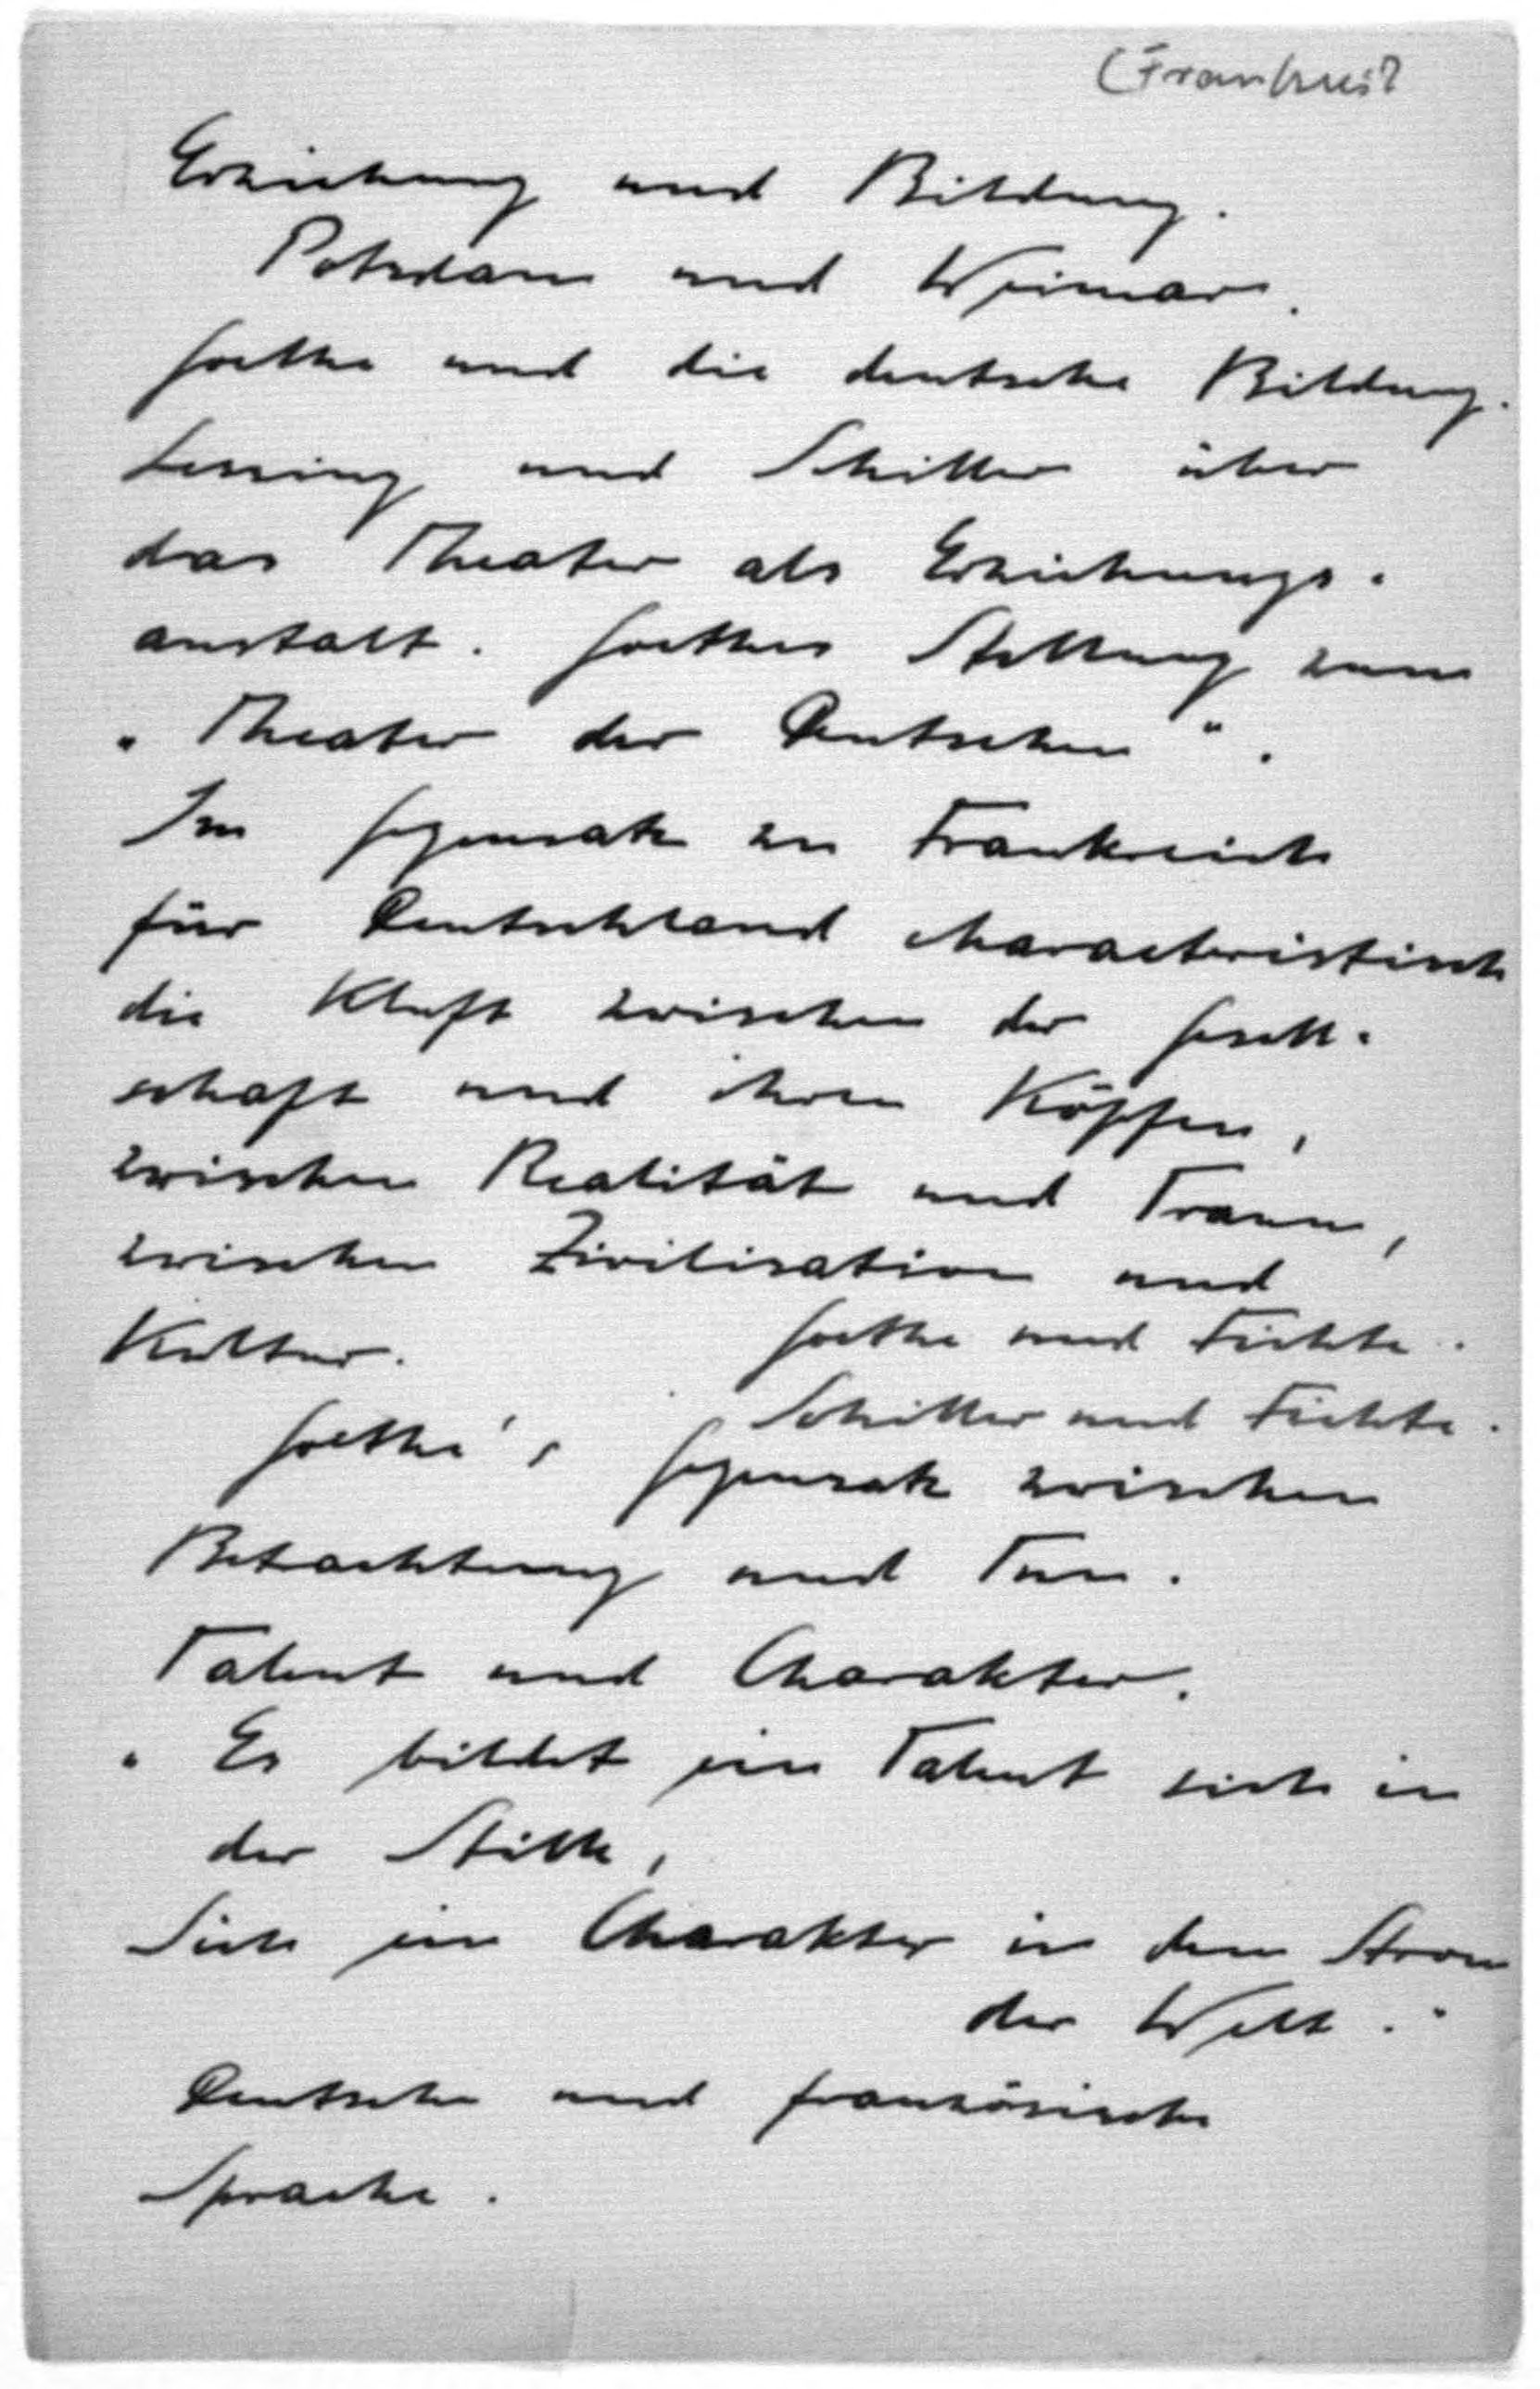 Erziehung und Bildung.
Potsdam und Weimar.
Goethe und die deutsche Bildung.
Lessing und Schiller über
das Theater als Erziehungs-
anstalt. Goethes Stellung zum
"Theater der Deutschen".
Im Gegensatz zu Frankreich
für Deutschland characteristisch
die Kluft zwischen der Gesell-
schaft und ihren Köpfen,
zwischen Realität und Traum,
zwischen Zivilisation und
Kultur. Goethe und Fichte.
Schiller und Fichte.
Goethe's Gegensatz zwischen
Betrachtung und Tun.
Talent und Charakter.
"Es bildet ein Talent sich in
der Stille,
Sich ein Charakter in dem Strom
der Welt."
Deutsche und französische
Sprache.